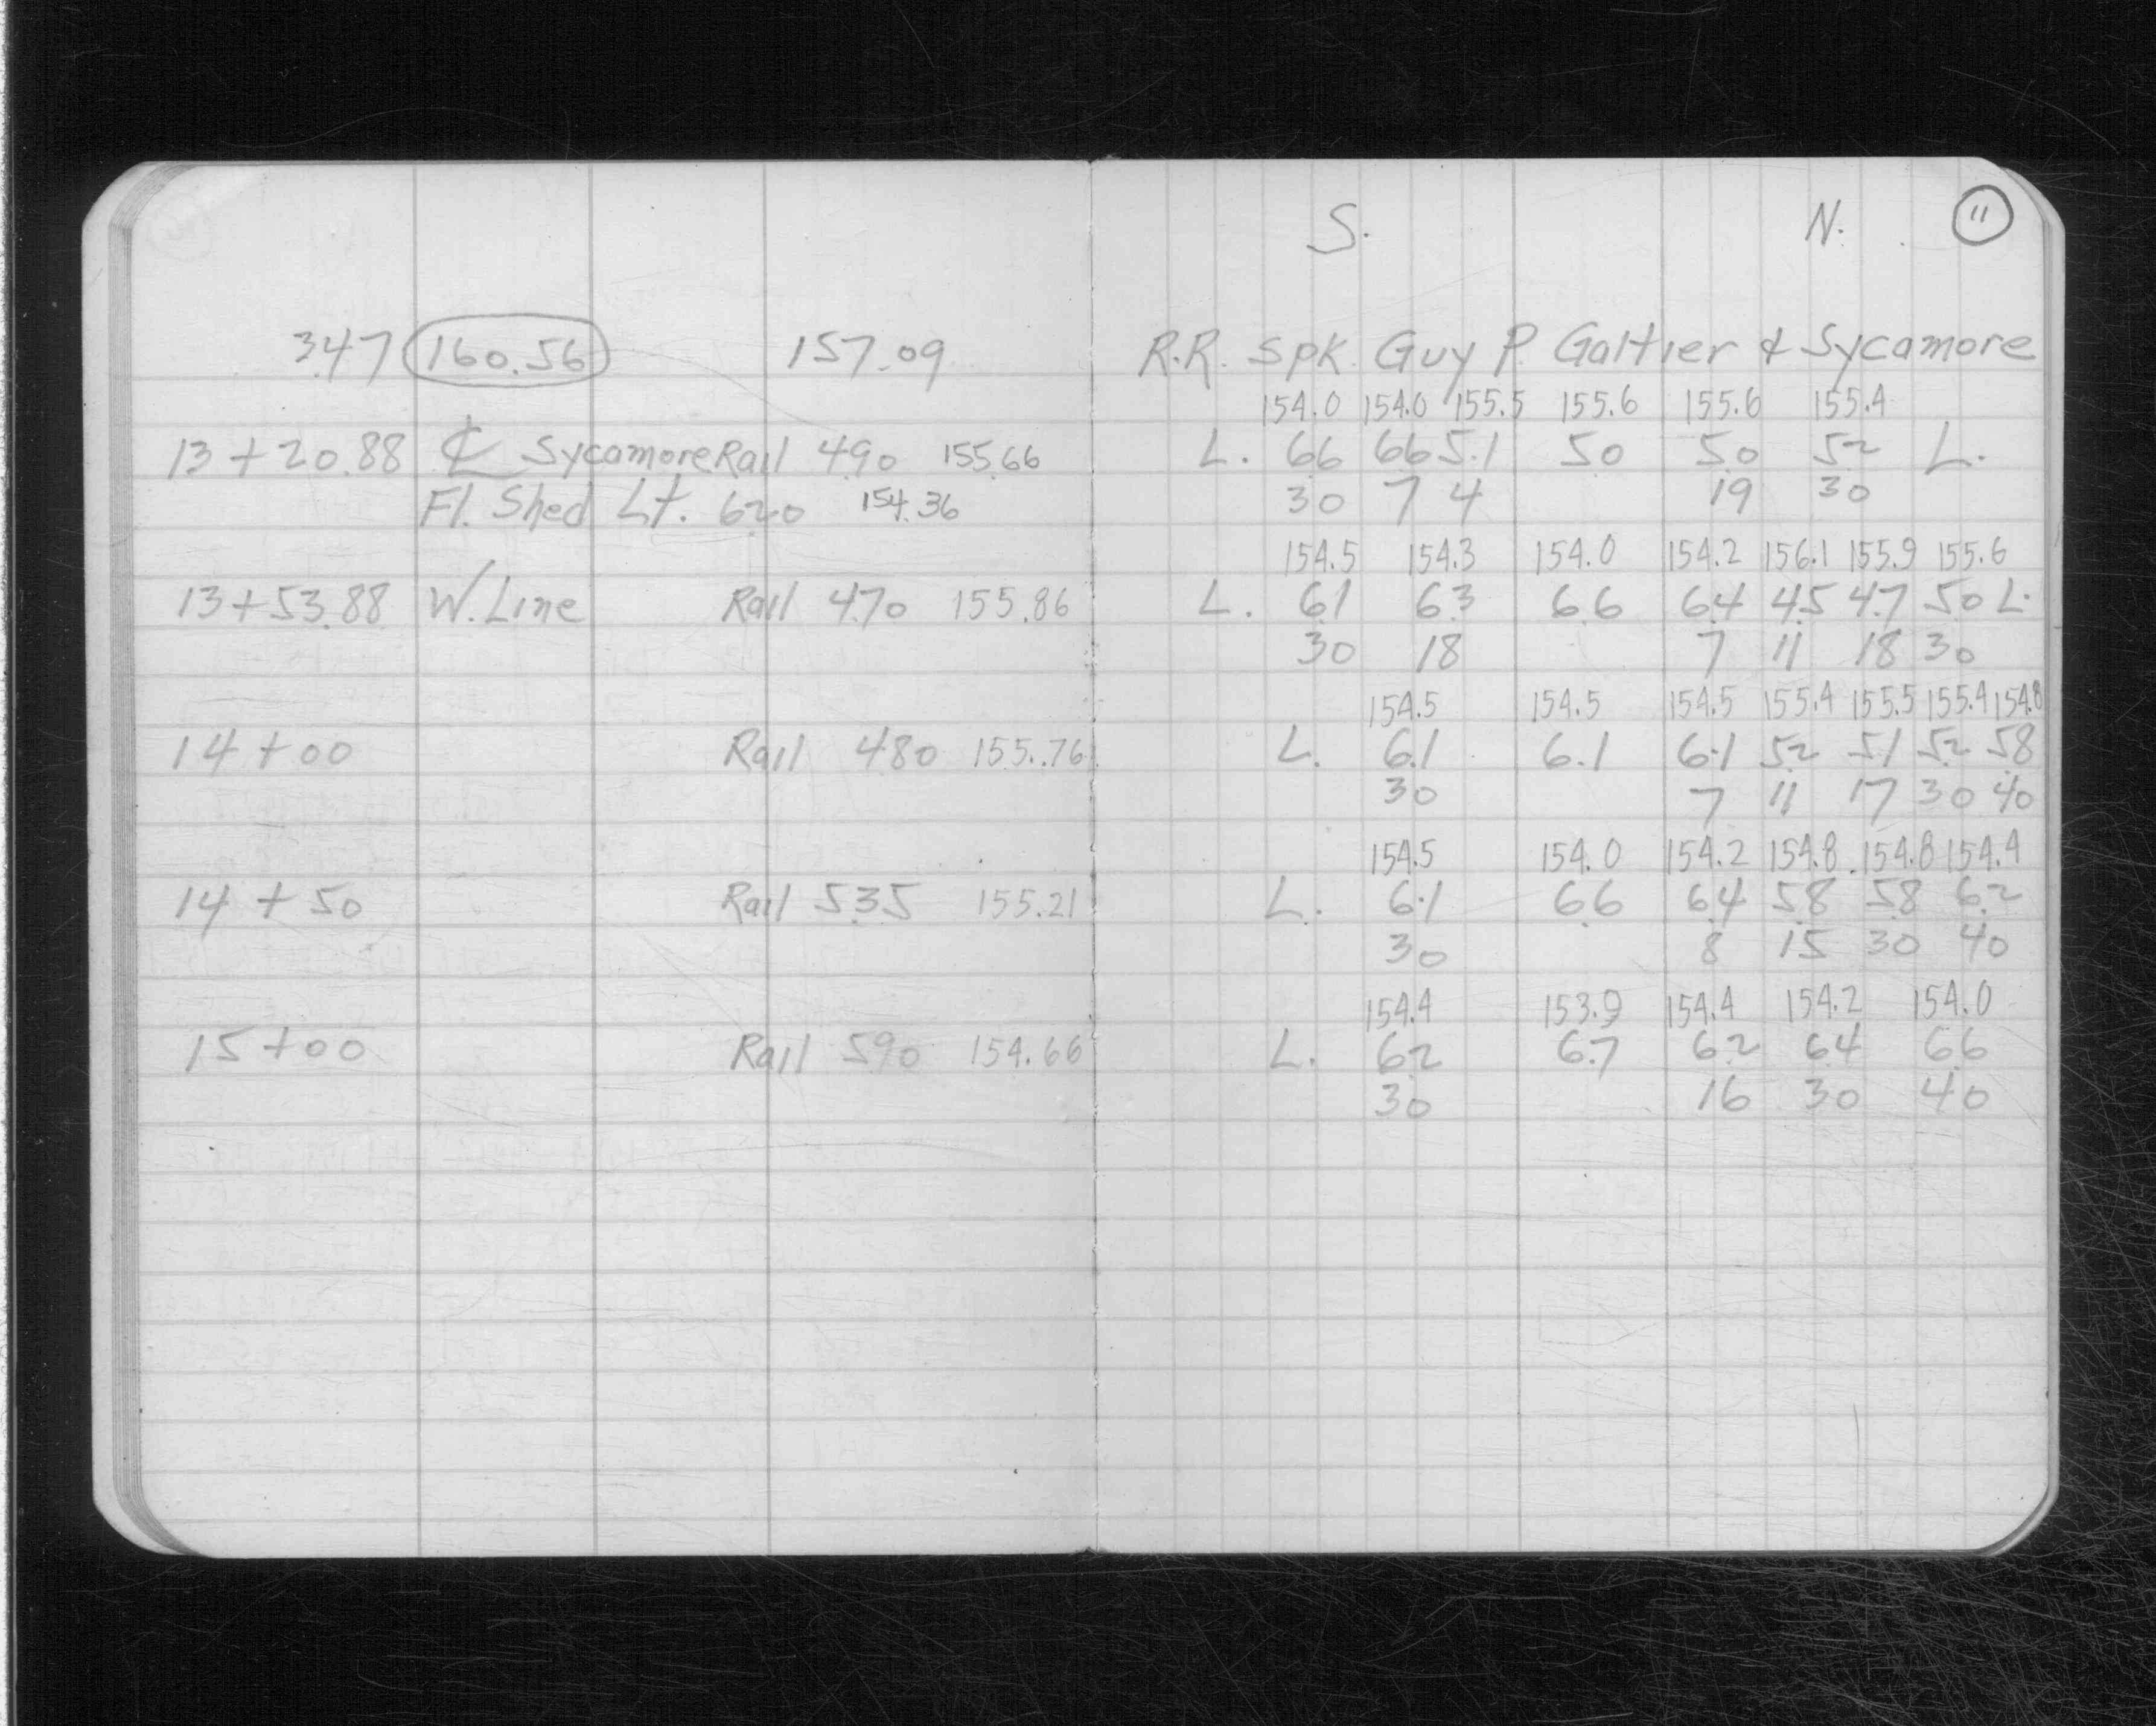 S. N. 11
3.47 160.56 157.09 R.R. Spk. Guy P. Galtier & Sycamore
154.0 154.0 155.5 155.6 155.6 155.4
13+20.88 ℄ Sycamore Rail 4.90 155.66 L. 6.6 6.6 5.1 5.0 5.0 5.2 L.
Fl. Shed Lt. 6.20 154.36 30 7 4 19 30
154.5 154.3 154.0 154.2 156.1 155.9 155.6
13+53.88 W. Line Rail 4.70 155.86 L. 6.1 6.3 6.6 6.4 4.5 4.7 5.0 L.
30 18 7 11 18 30
154.5 154.5 154.5 155.4 155.5 155.4 154.8
14+00 Rail 4.80 155.76 L. 6.1 6.1 6.1 5.2 5.1 5.2 5.8
30 7 11 17 30 40
154.5 154.0 154.2 154.8 154.8 154.4
14+50 Rail 5.35 155.21 L. 6.1 6.6 6.4 5.8 5.8 6.2
30 8 15 30 40
154.4 153.9 154.4 154.2 154.0
15+00 Rail 5.90 154.66 L. 6.2 6.7 6.2 6.4 6.6
30 16 30 40